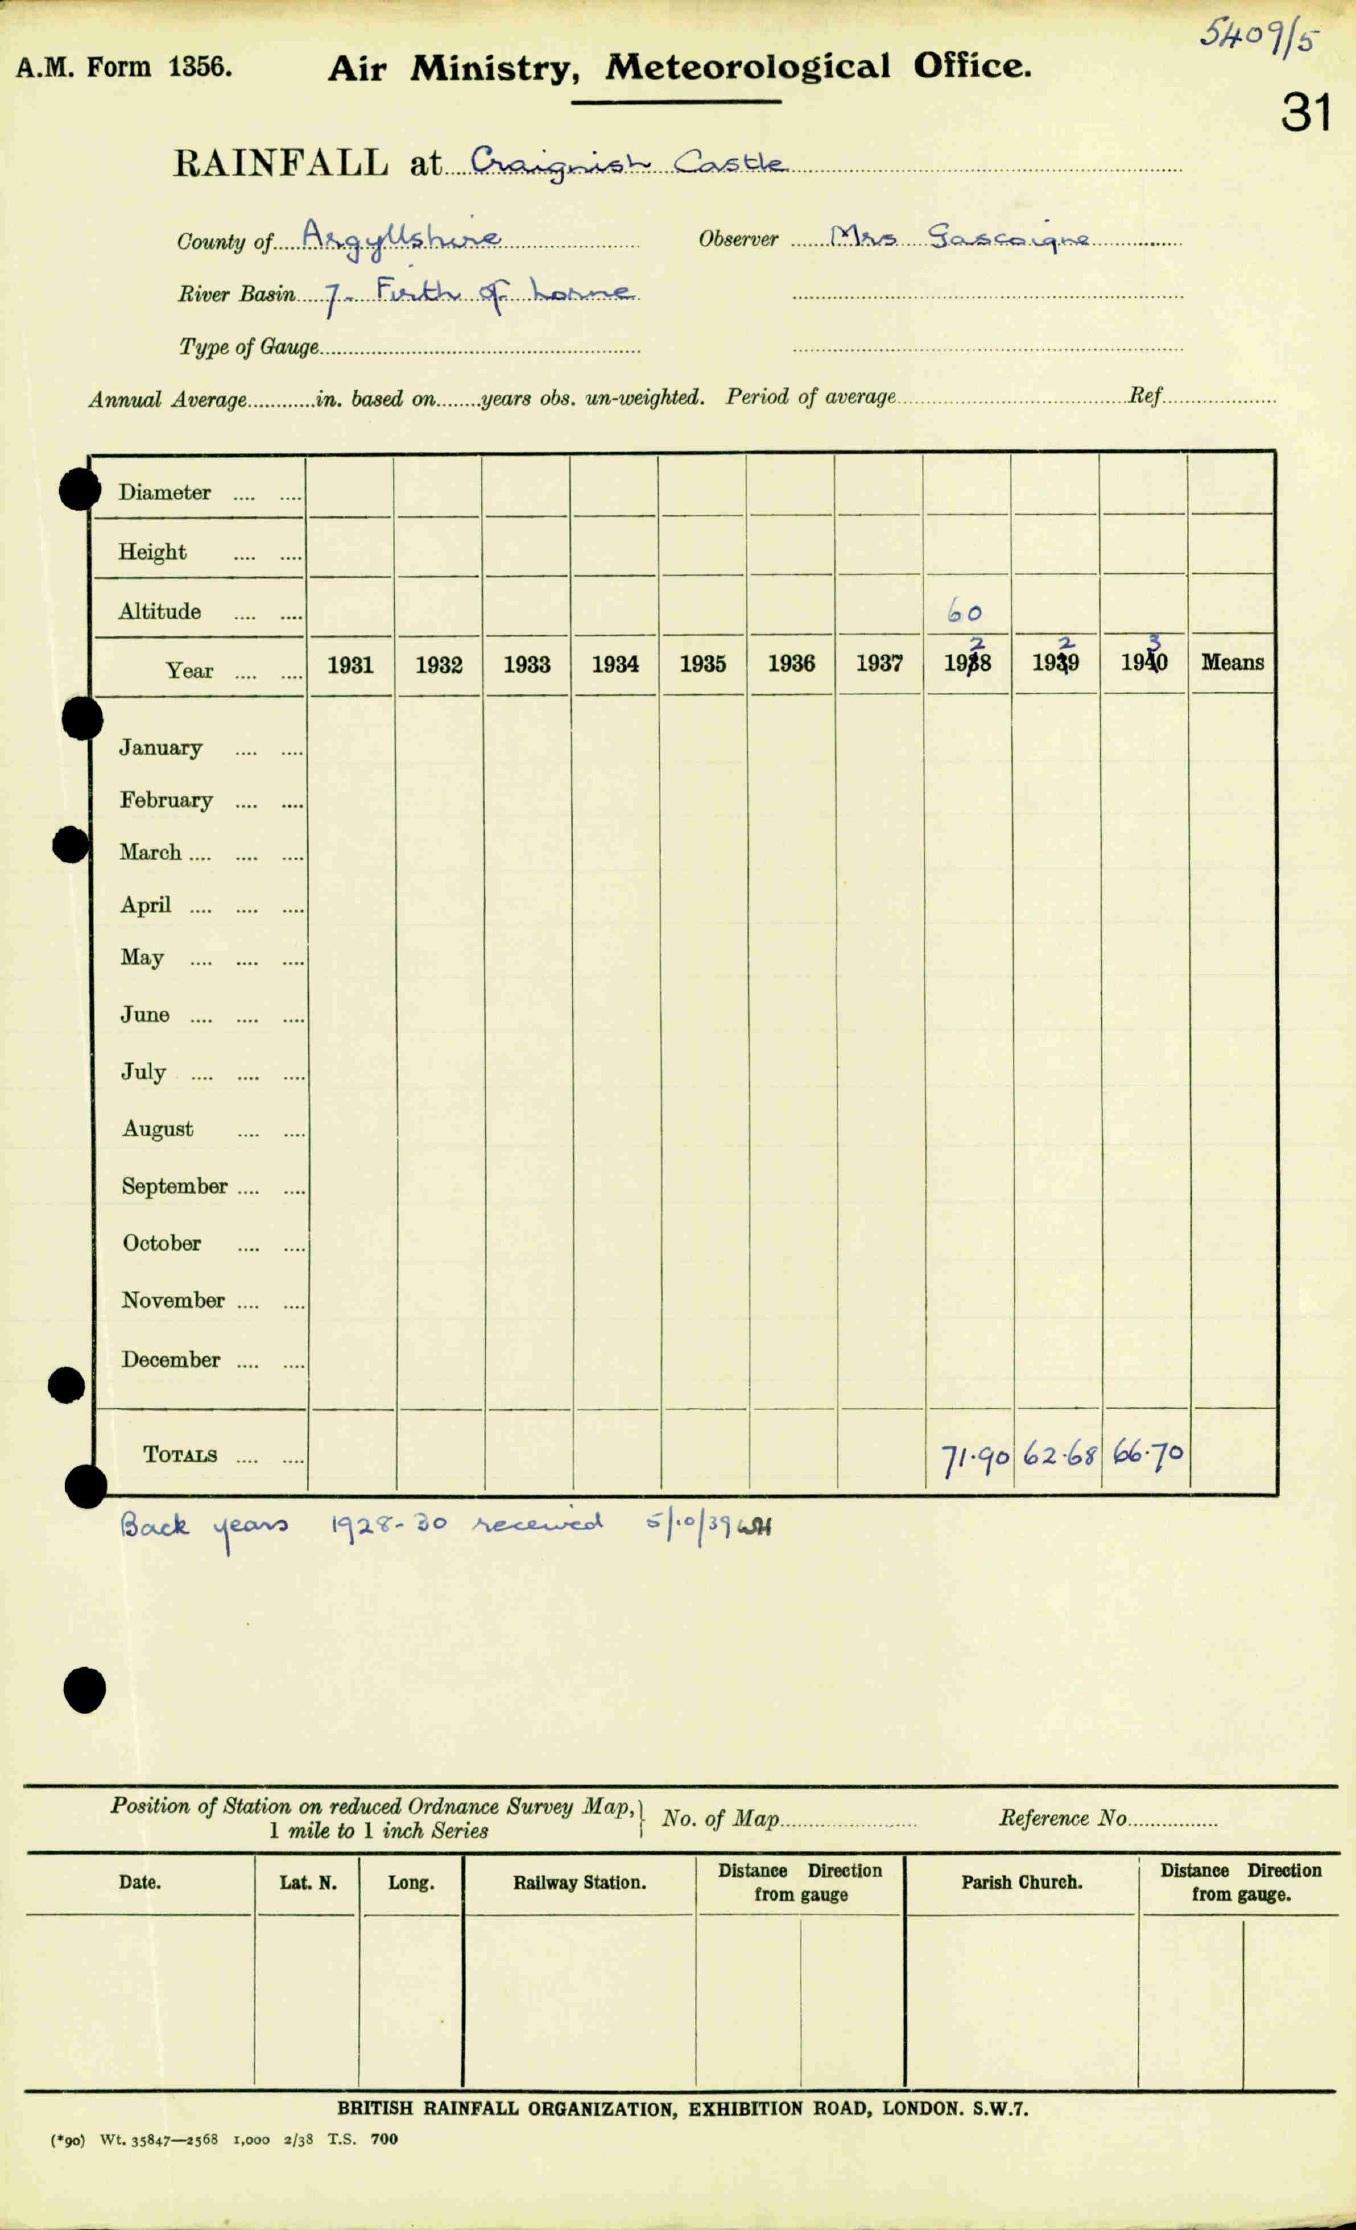 5409/5
A.M. Form 1356. Air Ministry, Meteorological Office.
31
RAINFALL at Craignish Castle
County of Argyllshire Observer Mrs Gascoigne
River Basin 7. Firth of Lorne
Type of Gauge
Annual Average in. based on years obs. un-weighted. Period of average Ref.
Diameter
Height
Altitude 60
2 2 3
Year 1931 1932 1933 1934 1935 1936 1937 1938 1939 1940 Means
January
February
March
April
May
June
July
August
September
October
November
December
TOTALS 71.90 62.68 66.70
Back years 1928-30 received 5/10/39 WH
Position of Station on reduced Ordnance Survey Map, } No. of Map Reference No.
1 mile to 1 inch Series
Date. Lat. N. Long. Railway Station. Distance Direction from gauge Parish Church. Distance Direction from gauge.
BRITISH RAINFALL ORGANIZATION, EXHIBITION ROAD, LONDON. S.W.7.
(*90) Wt. 35847—2568 1,000 2/38 T.S. 700